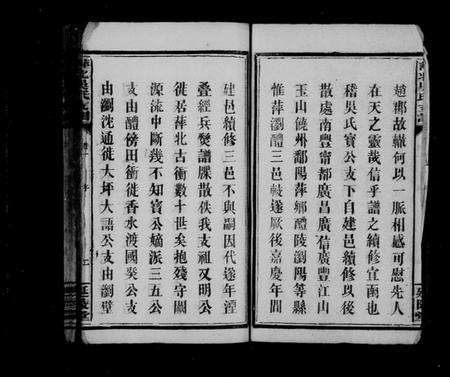 趙鄴故轍何以一脈相感可慰先人
在天之靈哉信乎譜之續修宜亟也
稽吳氏寳公支下自建邑續修以後
散處南豐甯都廣昌廣信廣豐江山
玉山饒州鄱陽萍鄉醴陵瀏陽等縣
惟萍瀏醴三邑較遂厥後嘉慶年間
建邑續修三邑不與嗣因代遂年湮
疊經兵燹譜牒散佚我支祖又明公
徙居萍北古衝數十世矣抱殘守闕
源流中斷幾不知寳公嫡派三五公
支由醴傍田衝徙香水渡國癸公支
由瀏沈通徙大坪大語公支由瀏璧